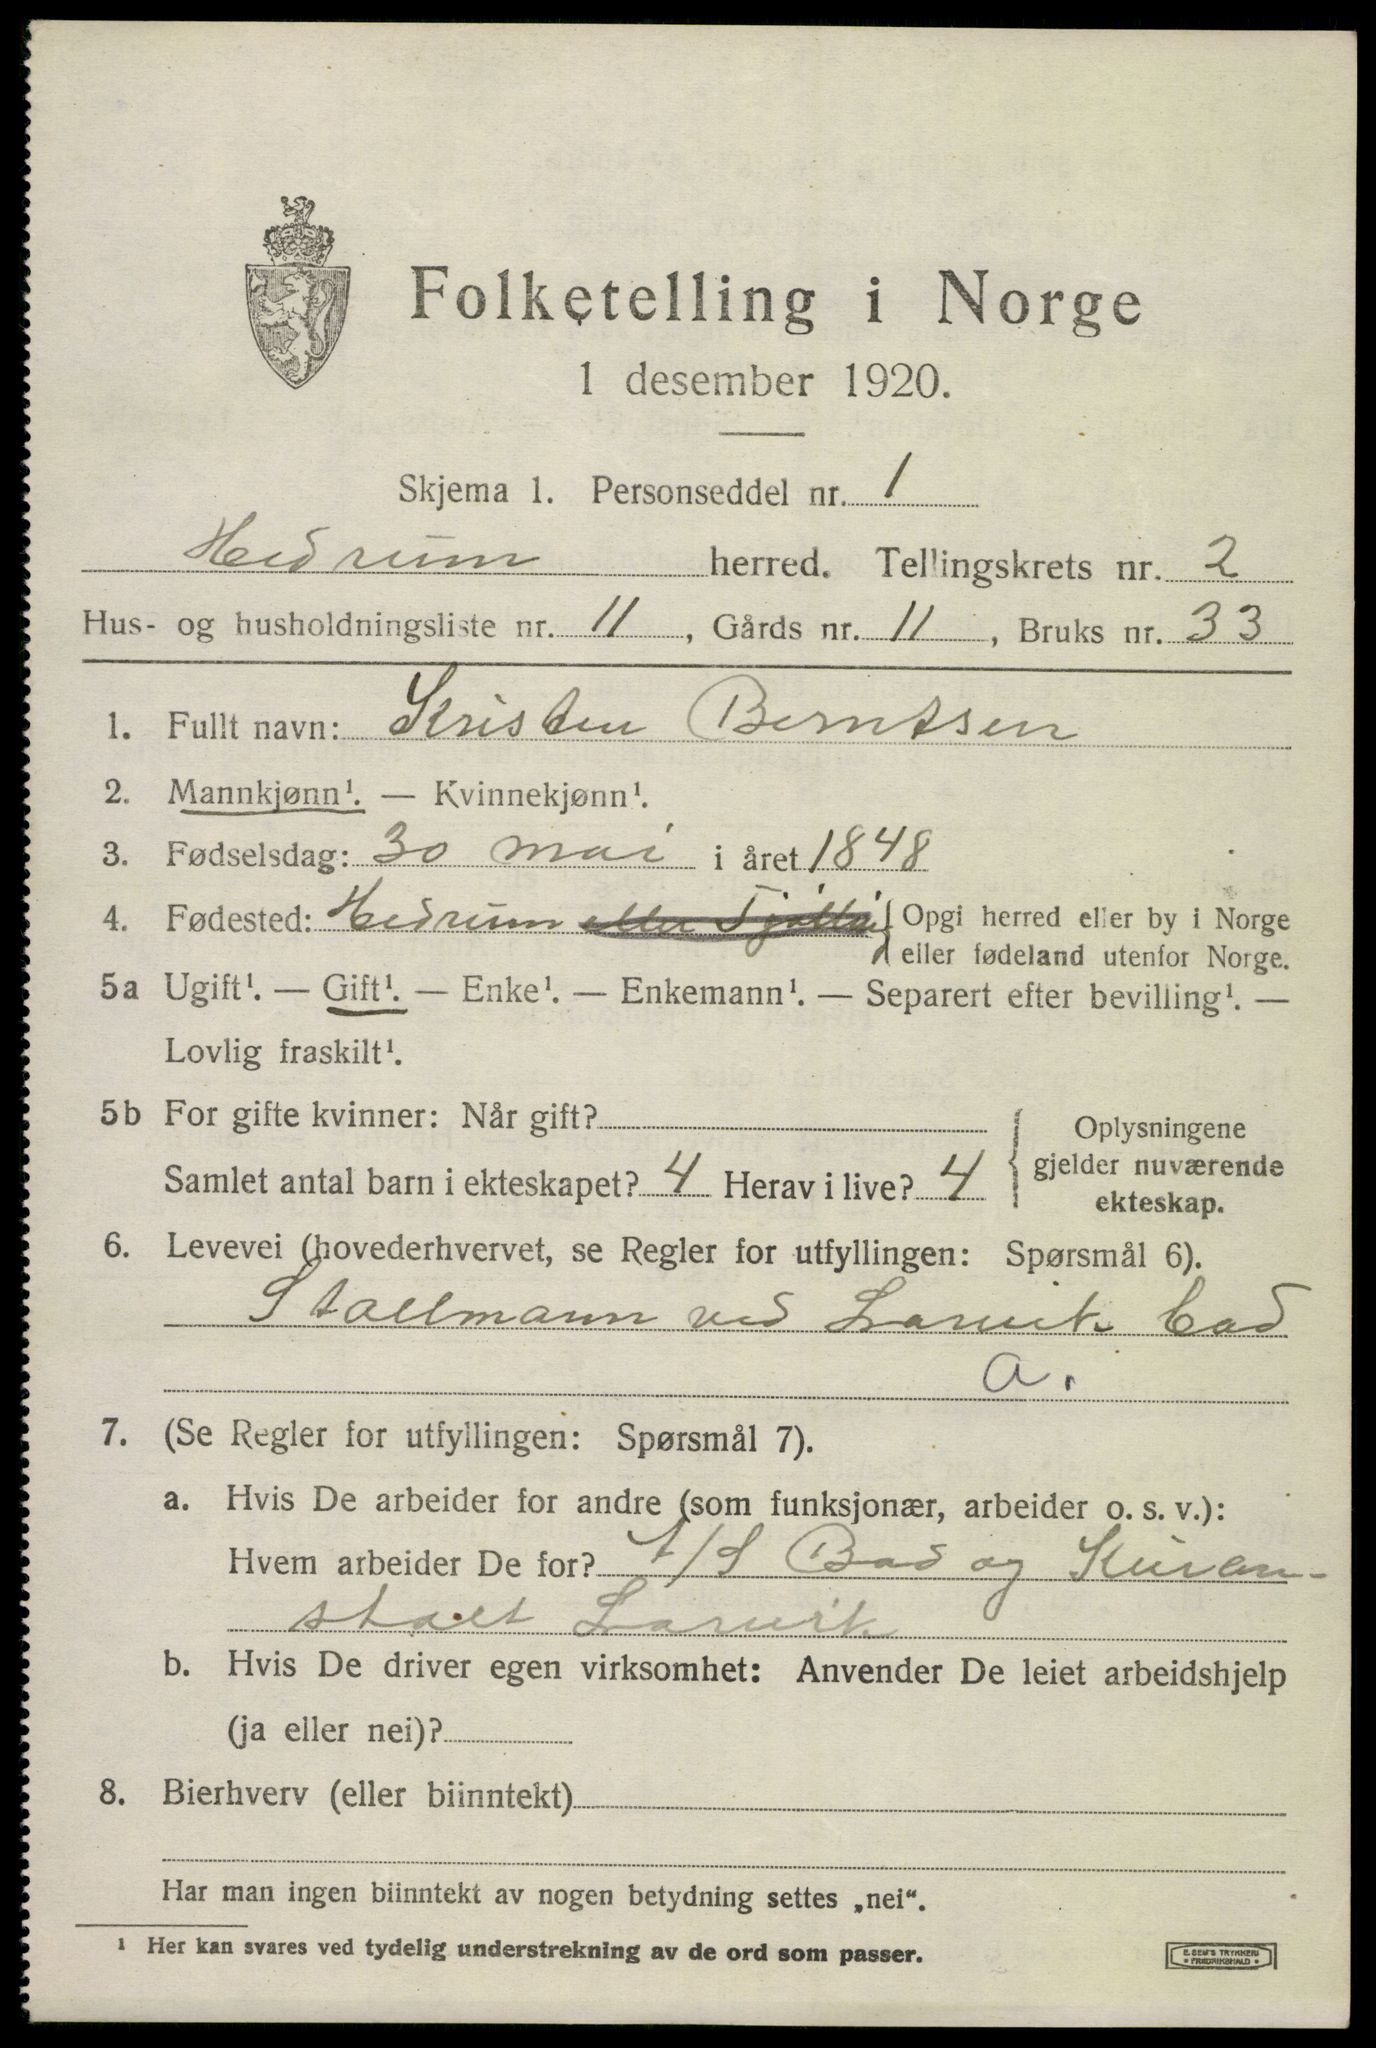 Folketelling i Norge
1 desember 1920.
Skjema 1. Personseddel nr. 1
Hedrum herred. Tellingskrets nr. 2
Hus- og husholdningsliste nr. 11, Gårds nr. 11, Bruks nr. 33
1. Fullt navn: Kristen Berntsen
2. Mannkjønn¹. — Kvinnekjønn¹.
3. Fødselsdag: 30 mai i året 1848
4. Fødested: Hedrum eller Tjølling { Opgi herred eller by i Norge
eller fødeland utenfor Norge.
5a Ugift¹. — Gift¹. — Enke¹. — Enkemann¹. — Separert efter bevilling¹. —
Lovlig fraskilt¹.
5b For gifte kvinner: Når gift?
Samlet antal barn i ekteskapet? 4 Herav i live? 4
Oplysningene
gjelder nuværende
ekteskap.
6. Levevei (hovederhvervet, se Regler for utfyllingen: Spørsmål 6).
Stallmann ved Larvik bad
a.
7. (Se Regler for utfyllingen: Spørsmål 7).
a. Hvis De arbeider for andre (som funksjonær, arbeider o. s. v.):
Hvem arbeider De for? A/S Bad og Kuran-
stalt Larvik
b. Hvis De driver egen virksomhet: Anvender De leiet arbeidshjelp
(ja eller nei)?
8. Bierhverv (eller biinntekt)
Har man ingen biinntekt av nogen betydning settes „nei“.
¹ Her kan svares ved tydelig understrekning av de ord som passer.
E. SEM'S TRYKKERI
FREDRIKSHALD